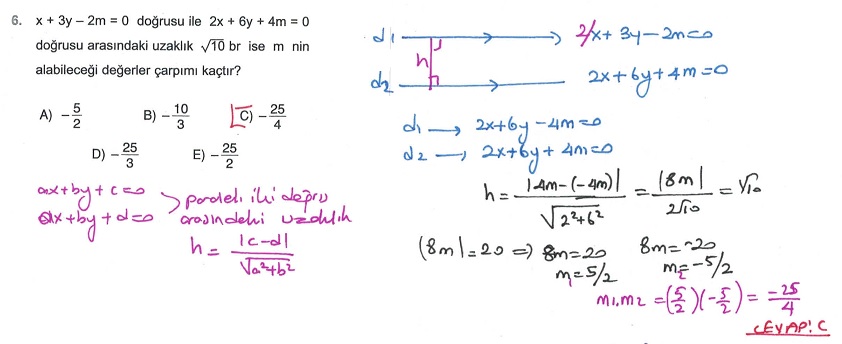 6. x + 3y – 2m = 0 doğrusu ile 2x + 6y + 4m = 0
doğrusu arasındaki uzaklık √10 br ise m nin
alabileceği değerler çarpımı kaçtır?
A) –5/2 B) –10/3 C) –25/4
D) –25/3 E) –25/2
ax+by+c=0
ax+by+d=0
paralel iki doğru
arasındaki uzaklık
h = |c-d| / √(a²+b²)
d1 2/x+3y-2m=0
h
d2 2x+6y+4m=0
d1 → 2x+6y-4m=0
d2 → 2x+6y+4m=0
h = |4m-(-4m)| / √(2²+6²) = |8m| / 2√10 = √10
|8m| = 20 => 8m=20 8m=-20
m1=5/2 m2=-5/2
m1.m2 = (5/2)(-5/2) = -25/4
CEVAP: C